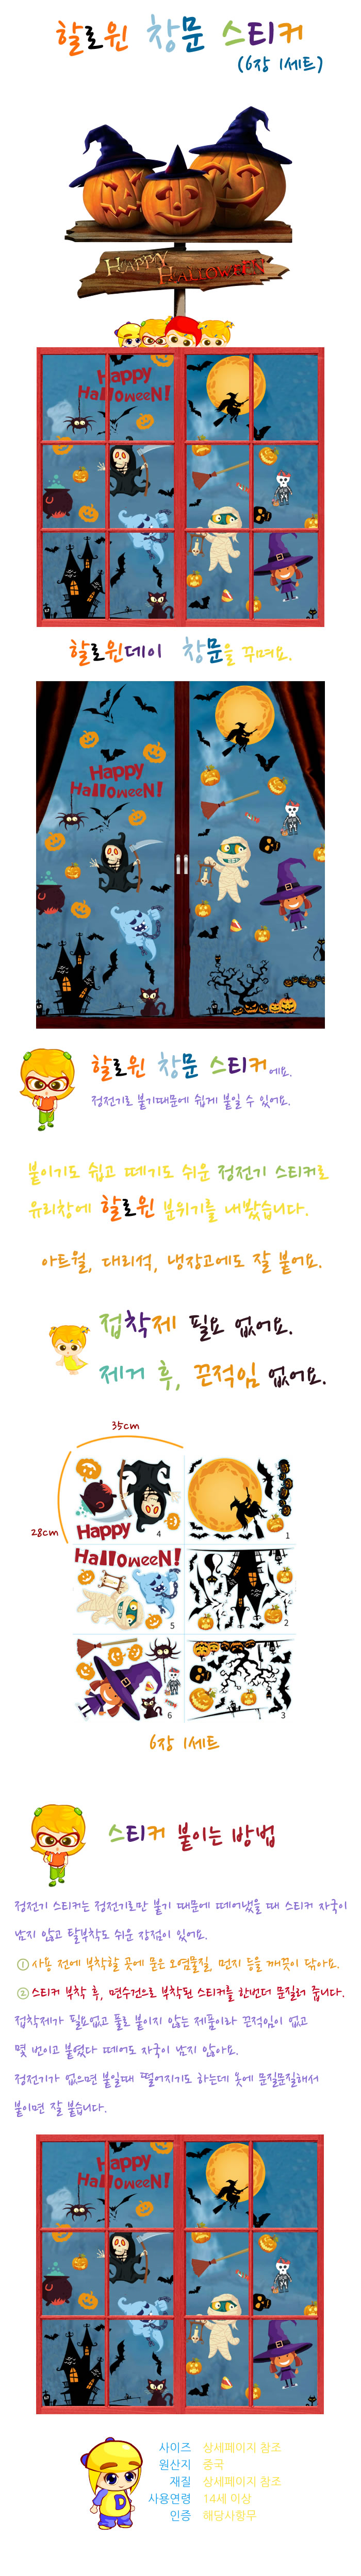 할로윈 창문 스티커
(6장 1세트)
HAPPY
HALLOWEEN
Happy
HallOWeeN!
할로윈데이 창문을 꾸며요.
Happy
HallOWeeN!
할로윈 창문 스티커에요.
정전기로 붙기때문에 쉽게 붙일 수 있어요.
붙이기도 쉽고 떼기도 쉬운 정전기 스티커로
유리창에 할로윈 분위기를 내봤습니다.
아트월, 대리석, 냉장고에도 잘 붙어요.
접착제 필요 없어요.
제거 후, 끈적임 없어요.
35cm
28cm
Happy
4
1
HallOWeeN!
5
2
6
3
6장 1세트
스티커 붙이는 방법
정전기 스티커는 정전기로만 붙기 때문에 떼어냈을 때 스티커 자국이
남지 않고 탈부착도 쉬운 장점이 있어요.
① 사용 전에 부착할 곳에 묻은 오염물질, 먼지 등을 깨끗이 닦아요.
② 스티커 부착 후, 면수건으로 부착된 스티커를 한번더 문질러 줍니다.
접착제가 필요없고 풀로 붙이지 않는 제품이라 끈적임이 없고
몇 번이고 붙였다 떼어도 자국이 남지 않아요.
정전기가 없으면 붙일때 떨어지기도 하는데 옷에 문질문질해서
붙이면 잘 붙습니다.
Happy
HallOWeeN!
D
사이즈 상세페이지 참조
원산지 중국
재질 상세페이지 참조
사용연령 14세 이상
인증 해당사항무